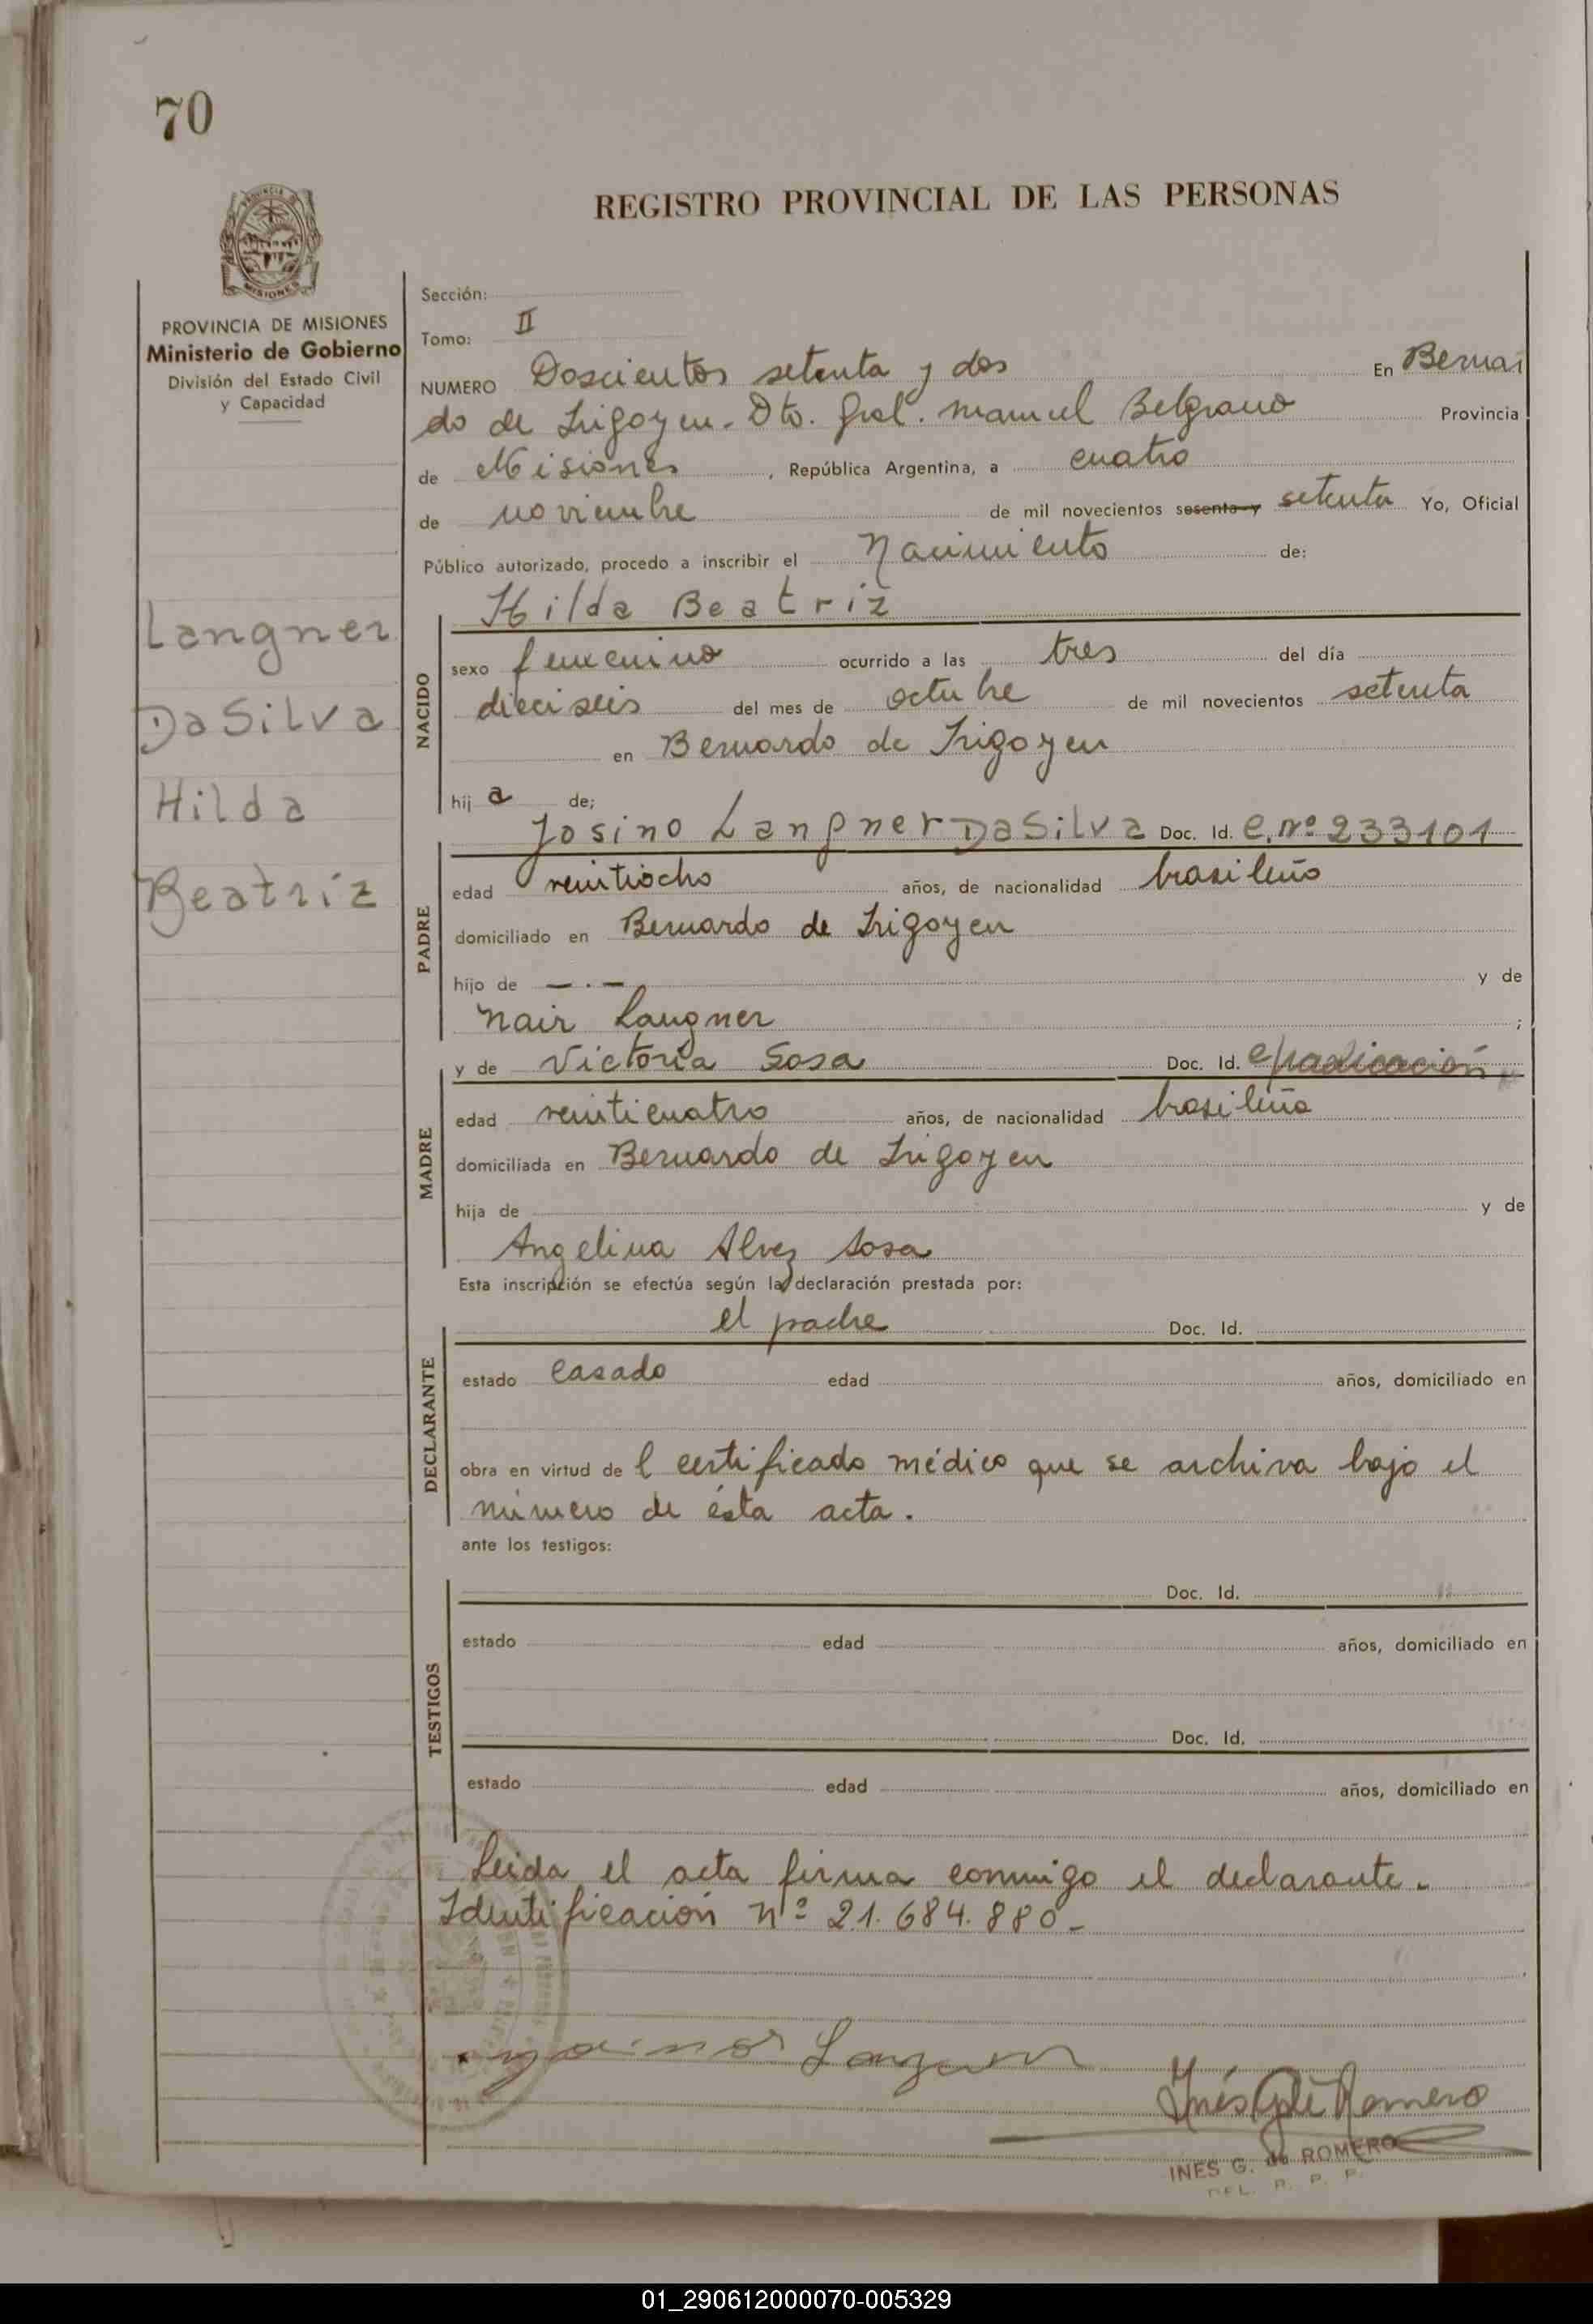 70
REGISTRO PROVINCIAL DE LAS PERSONAS
MISIONES
PROVINCIA DE MISIONES
Ministerio de Gobierno
División del Estado Civil
y Capacidad
Langner
Da Silva
Hilda
Beatriz
Sección:
Tomo: II
NUMERO Doscientos setenta y dos En Bernar
do de Irigoyen. Dto. Gral. Manuel Belgrano Provincia
de Misiones, República Argentina, a cuatro
de noviembre de mil novecientos sesenta y setenta Yo, Oficial
Público autorizado, procedo a inscribir el Nacimiento de:
Hilda Beatriz
NACIDO
sexo femenino ocurrido a las tres del día
dieciseis del mes de octubre de mil novecientos setenta
en Bernardo de Irigoyen
hij a de;
Josino Langner Da Silva Doc. Id. C. nº 233101
PADRE
edad veintiocho años, de nacionalidad brasileño
domiciliado en Bernardo de Irigoyen
hijo de — . — y de
Nair Langner ;
y de Victoria Sosa Doc. Id.
MADRE
edad veinticuatro años, de nacionalidad brasileña
domiciliada en Bernardo de Irigoyen
hija de y de
Angelina Alvez Sosa
Esta inscripción se efectúa según la declaración prestada por:
el padre Doc. Id.
DECLARANTE
estado casado edad años, domiciliado en
obra en virtud de l certificado médico que se archiva bajo el
número de ésta acta.
ante los testigos:
Doc. Id.
TESTIGOS
estado edad años, domiciliado en
Doc. Id.
estado edad años, domiciliado en
Leida el acta firma conmigo el declarante.
Identificación nº 21.684.880-
Inés G. de Romero
INES G. de ROMERO
DEL. R. P. P.
01_290612000070-005329